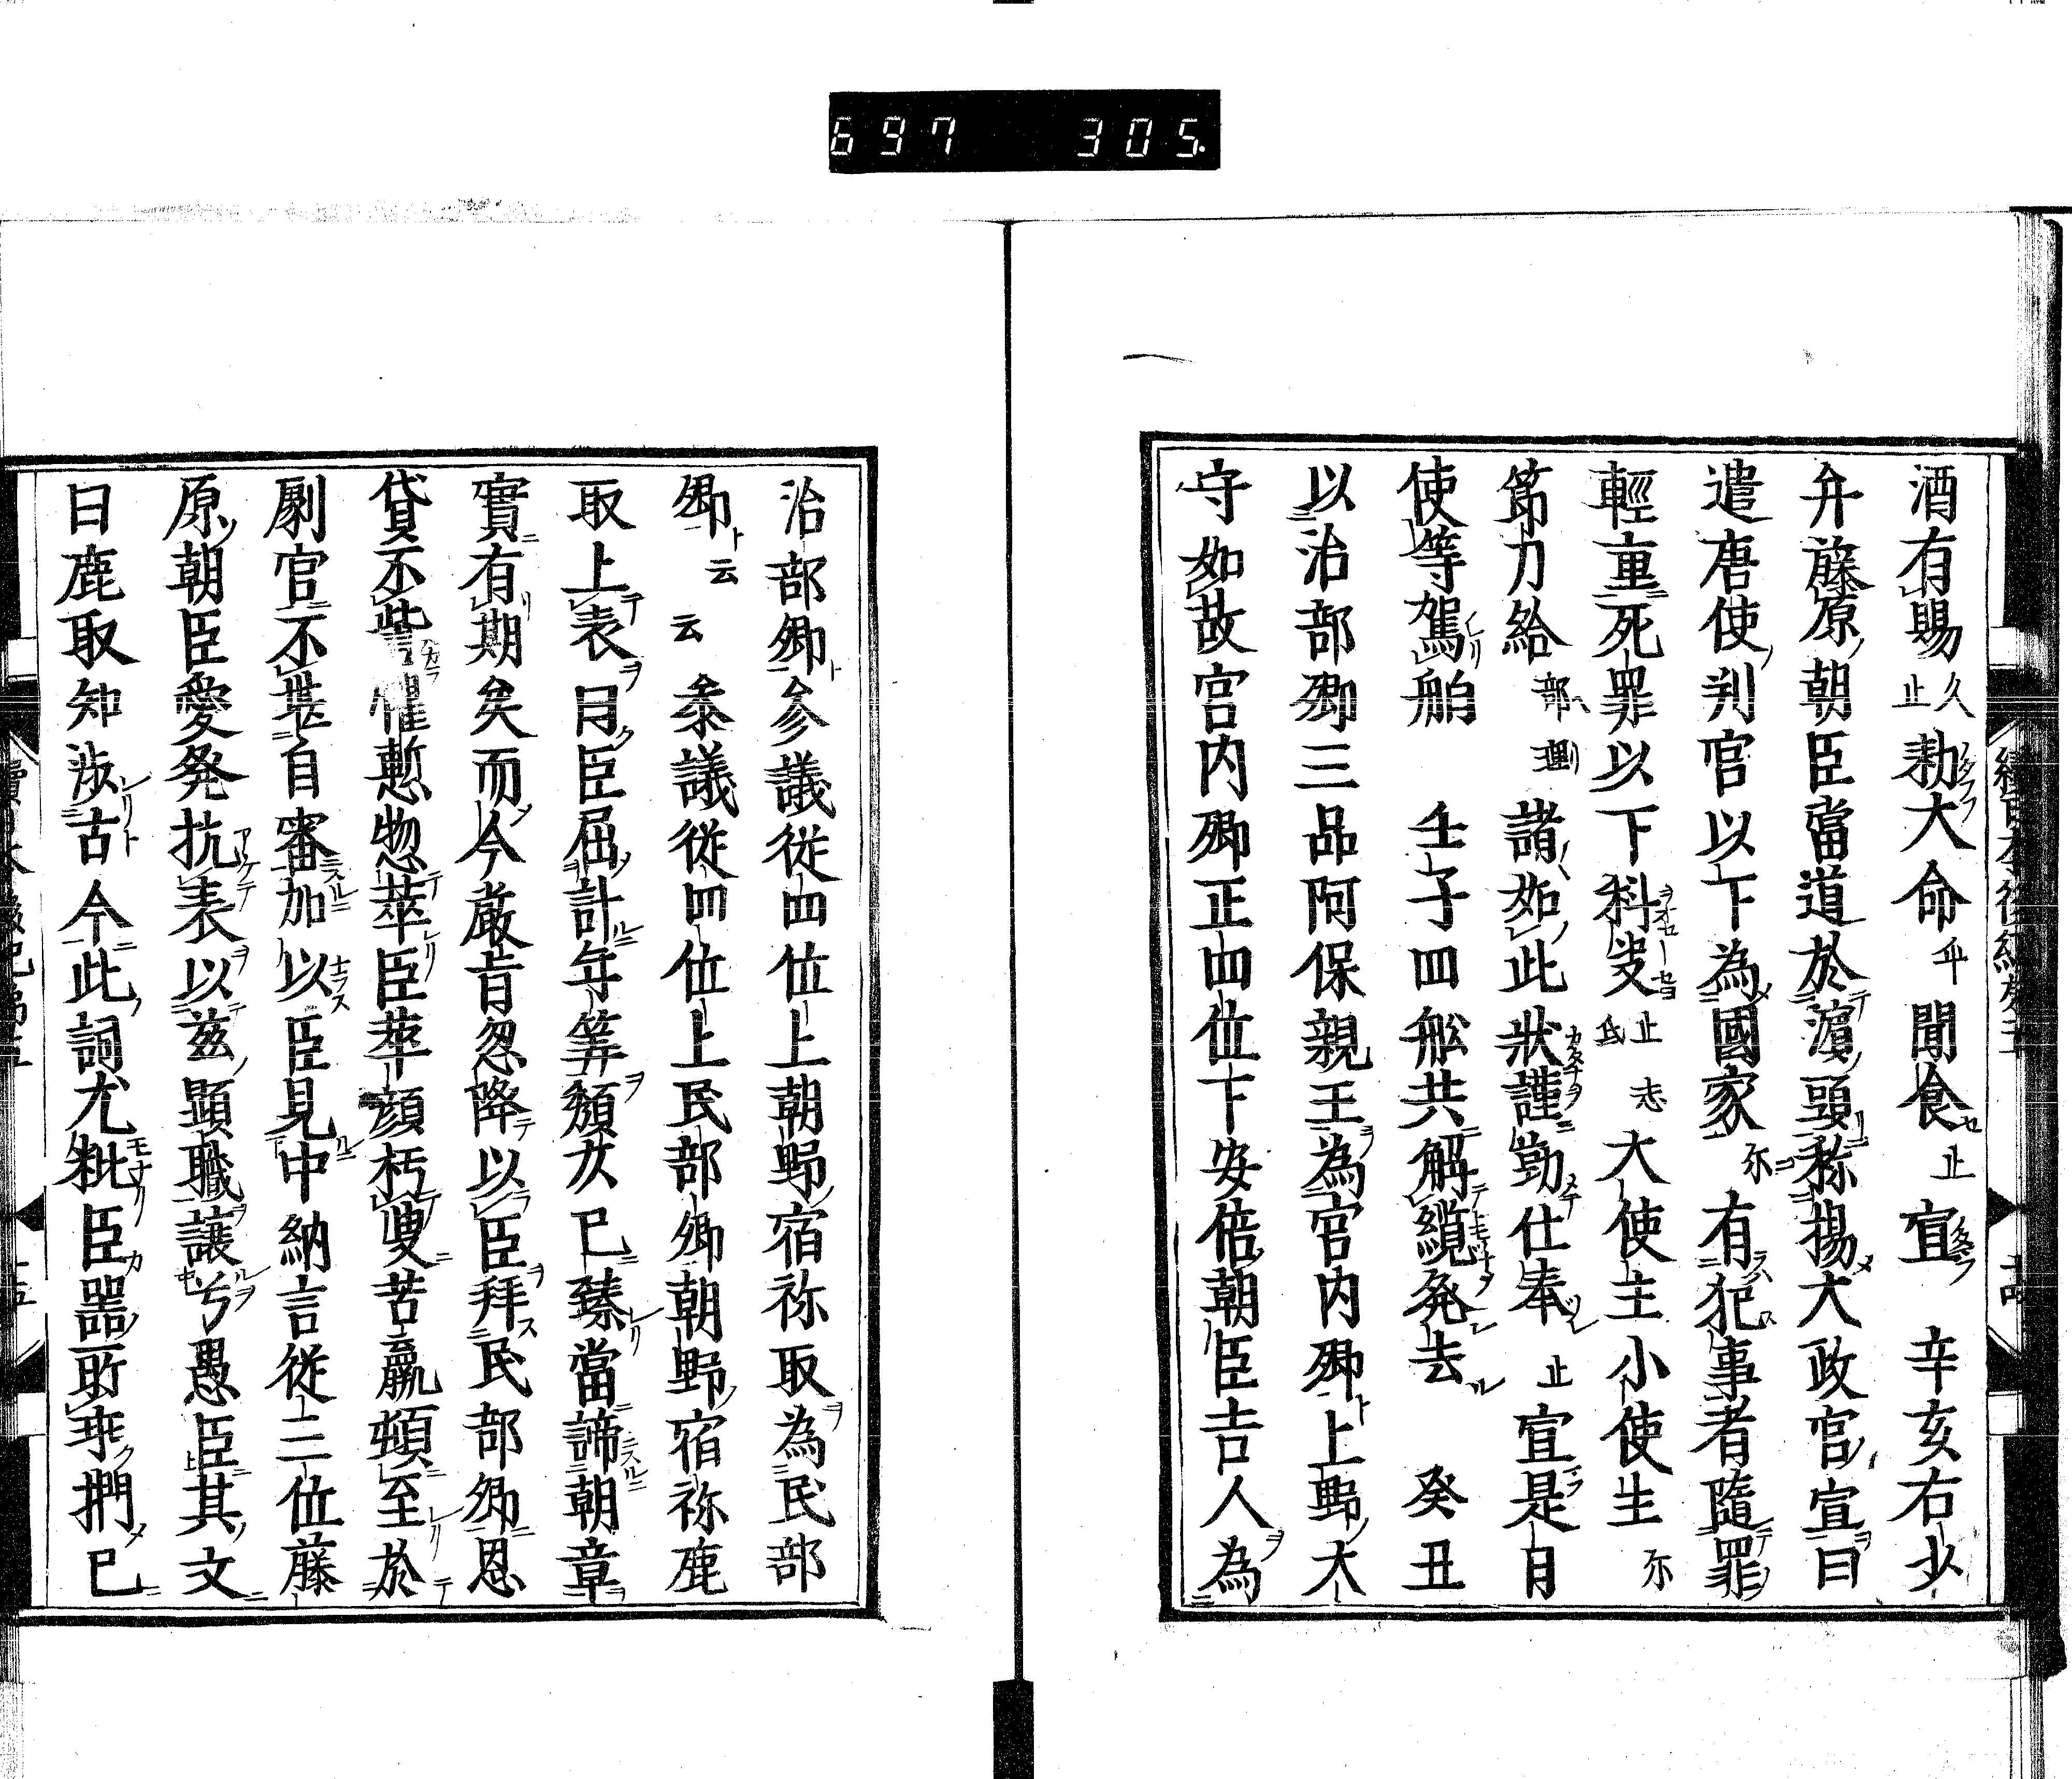 697 305.
酒有賜久止勅大命乎聞食止宣 辛亥右少
弁藤原朝臣當道於濱頭称揚大政官宣曰
遣唐使判官以下為國家尓有犯事者隨罪
輕重死罪以下科决止之氐大使主小使生尓
節刀給部理諸如此狀謹勤仕奉止宣是日
使等駕舶 壬子四舩共解纜発去 癸丑
以治部卿三品阿保親王為宮内卿上野大
守如故宮内卿正四位下安倍朝臣吉人為
治部卿参議從四位上朝野宿祢取為民部
卿云云 参議從四位上民部卿朝野宿祢鹿
取上表曰臣屈計年筭頽齡已臻當諦朝章
實有期矣而今厳旨忽降以臣拜民部卿恩
貸不訾慙惣萃臣萃顔朽叟苦羸頓至於
劇官不堪自審加以臣見中納言從三位藤
原朝臣愛発抗表以兹顯職讓兮愚臣其文
曰鹿取知涉古今此詞尤粃臣噐所非捫已